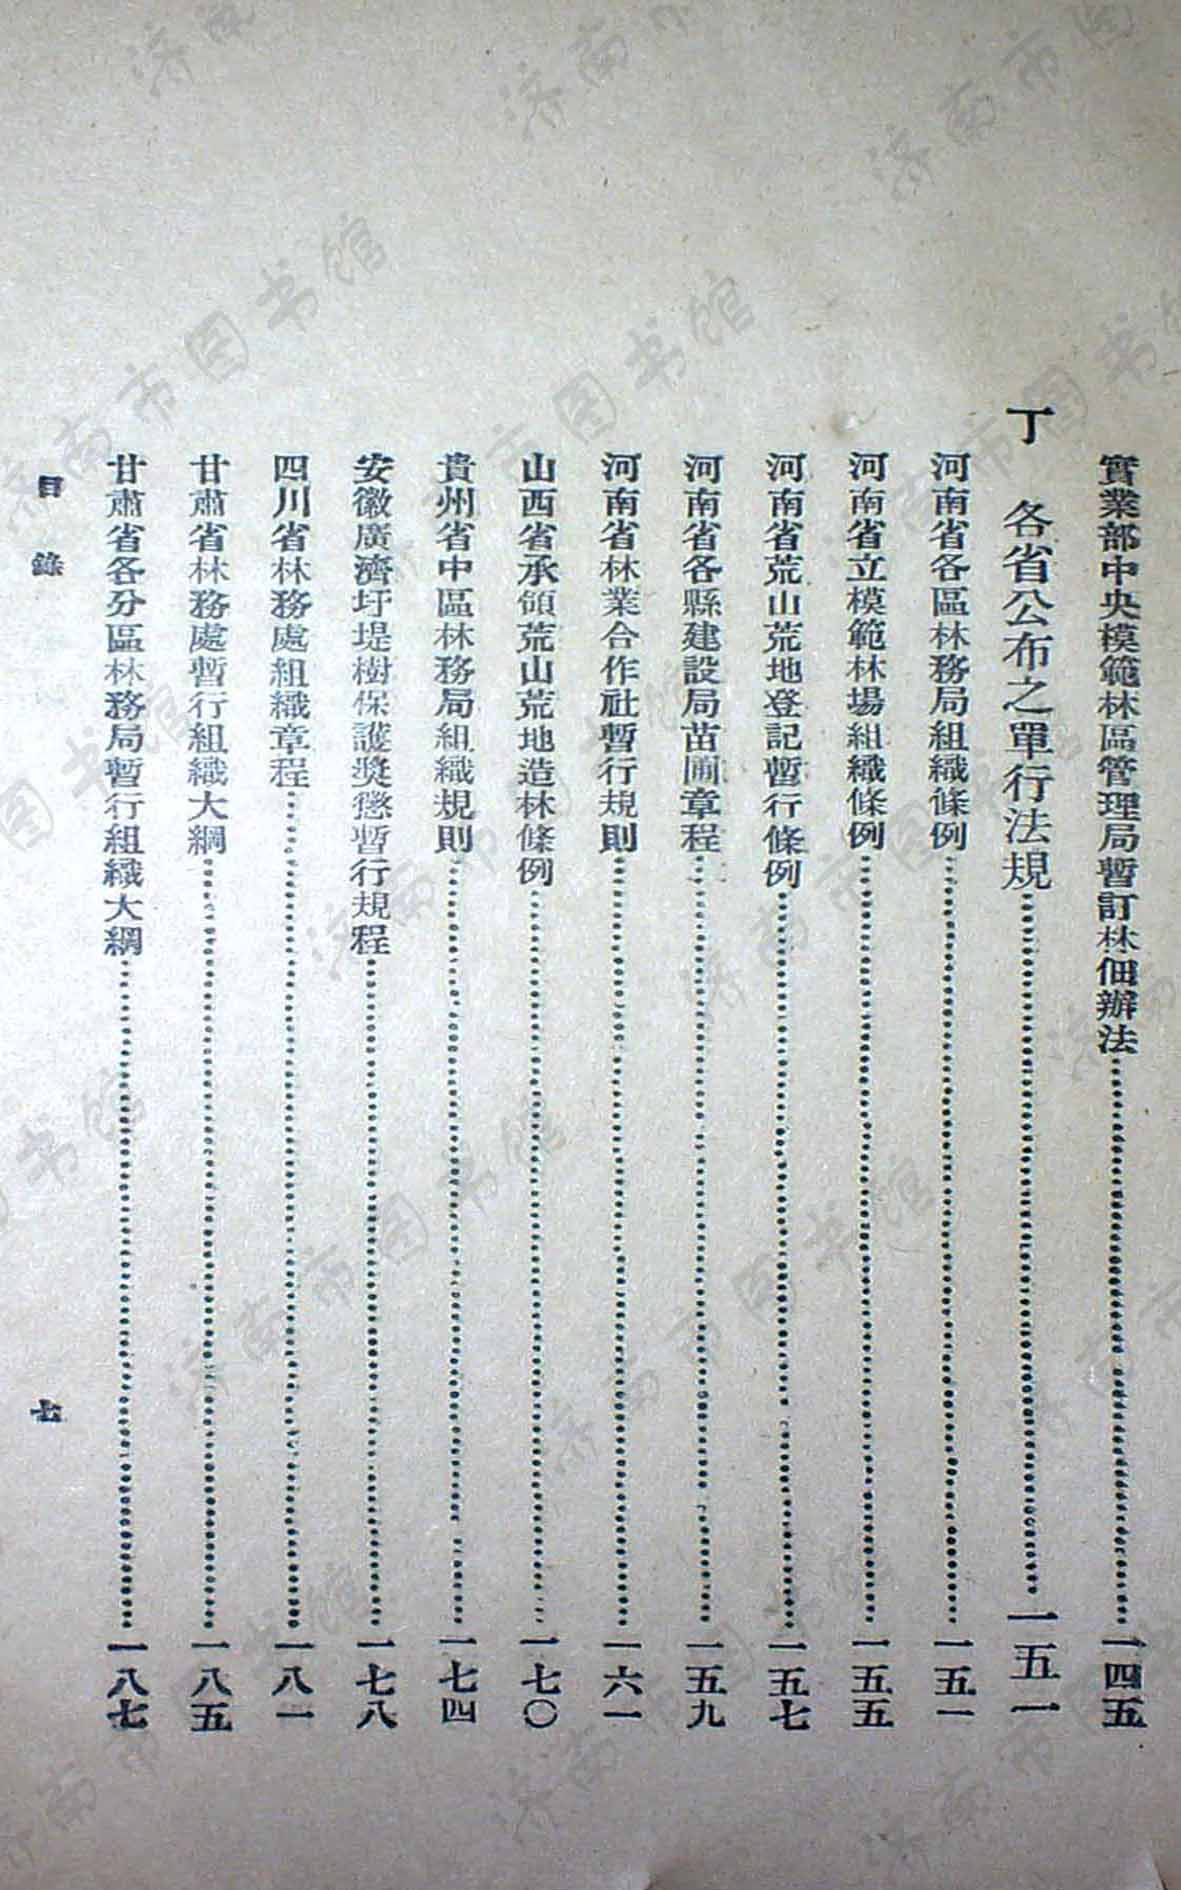 實業部中央模範林區管理局暫訂林佃辦法…………一四五
丁　各省公布之單行法規…………一五一
河南省各區林務局組織條例…………一五一
河南省立模範林場組織條例…………一五五
河南省荒山荒地登記暫行條例…………一五七
河南省各縣建設局苗圃章程…………一五九
河南省林業合作社暫行規則…………一六一
山西省承領荒山荒地造林條例…………一七〇
貴州省中區林務局組織規則…………一七四
安徽廣濟圩堤樹保護獎懲暫行規程…………一七八
四川省林務處組織章程…………一八一
甘肅省林務處暫行組織大綱…………一八五
甘肅省各分區林務局暫行組織大綱…………一八七
目錄　七
济南市图书馆